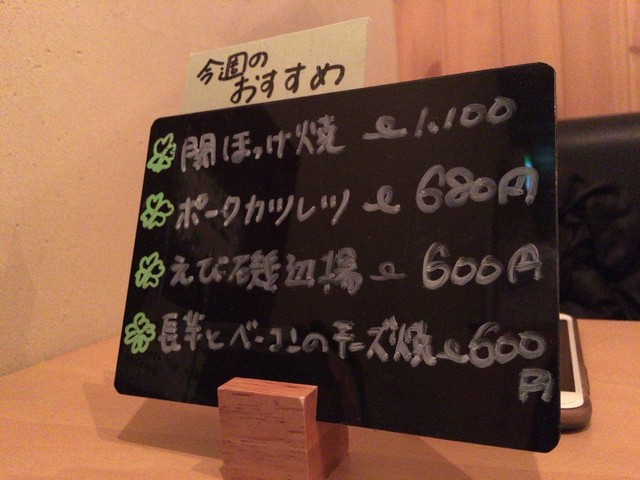 今週の
おすすめ
開ほっけ焼 1,100
ポークカツレツ 680円
えび磯辺揚 600円
長芋とベーコンのチーズ焼 600
円